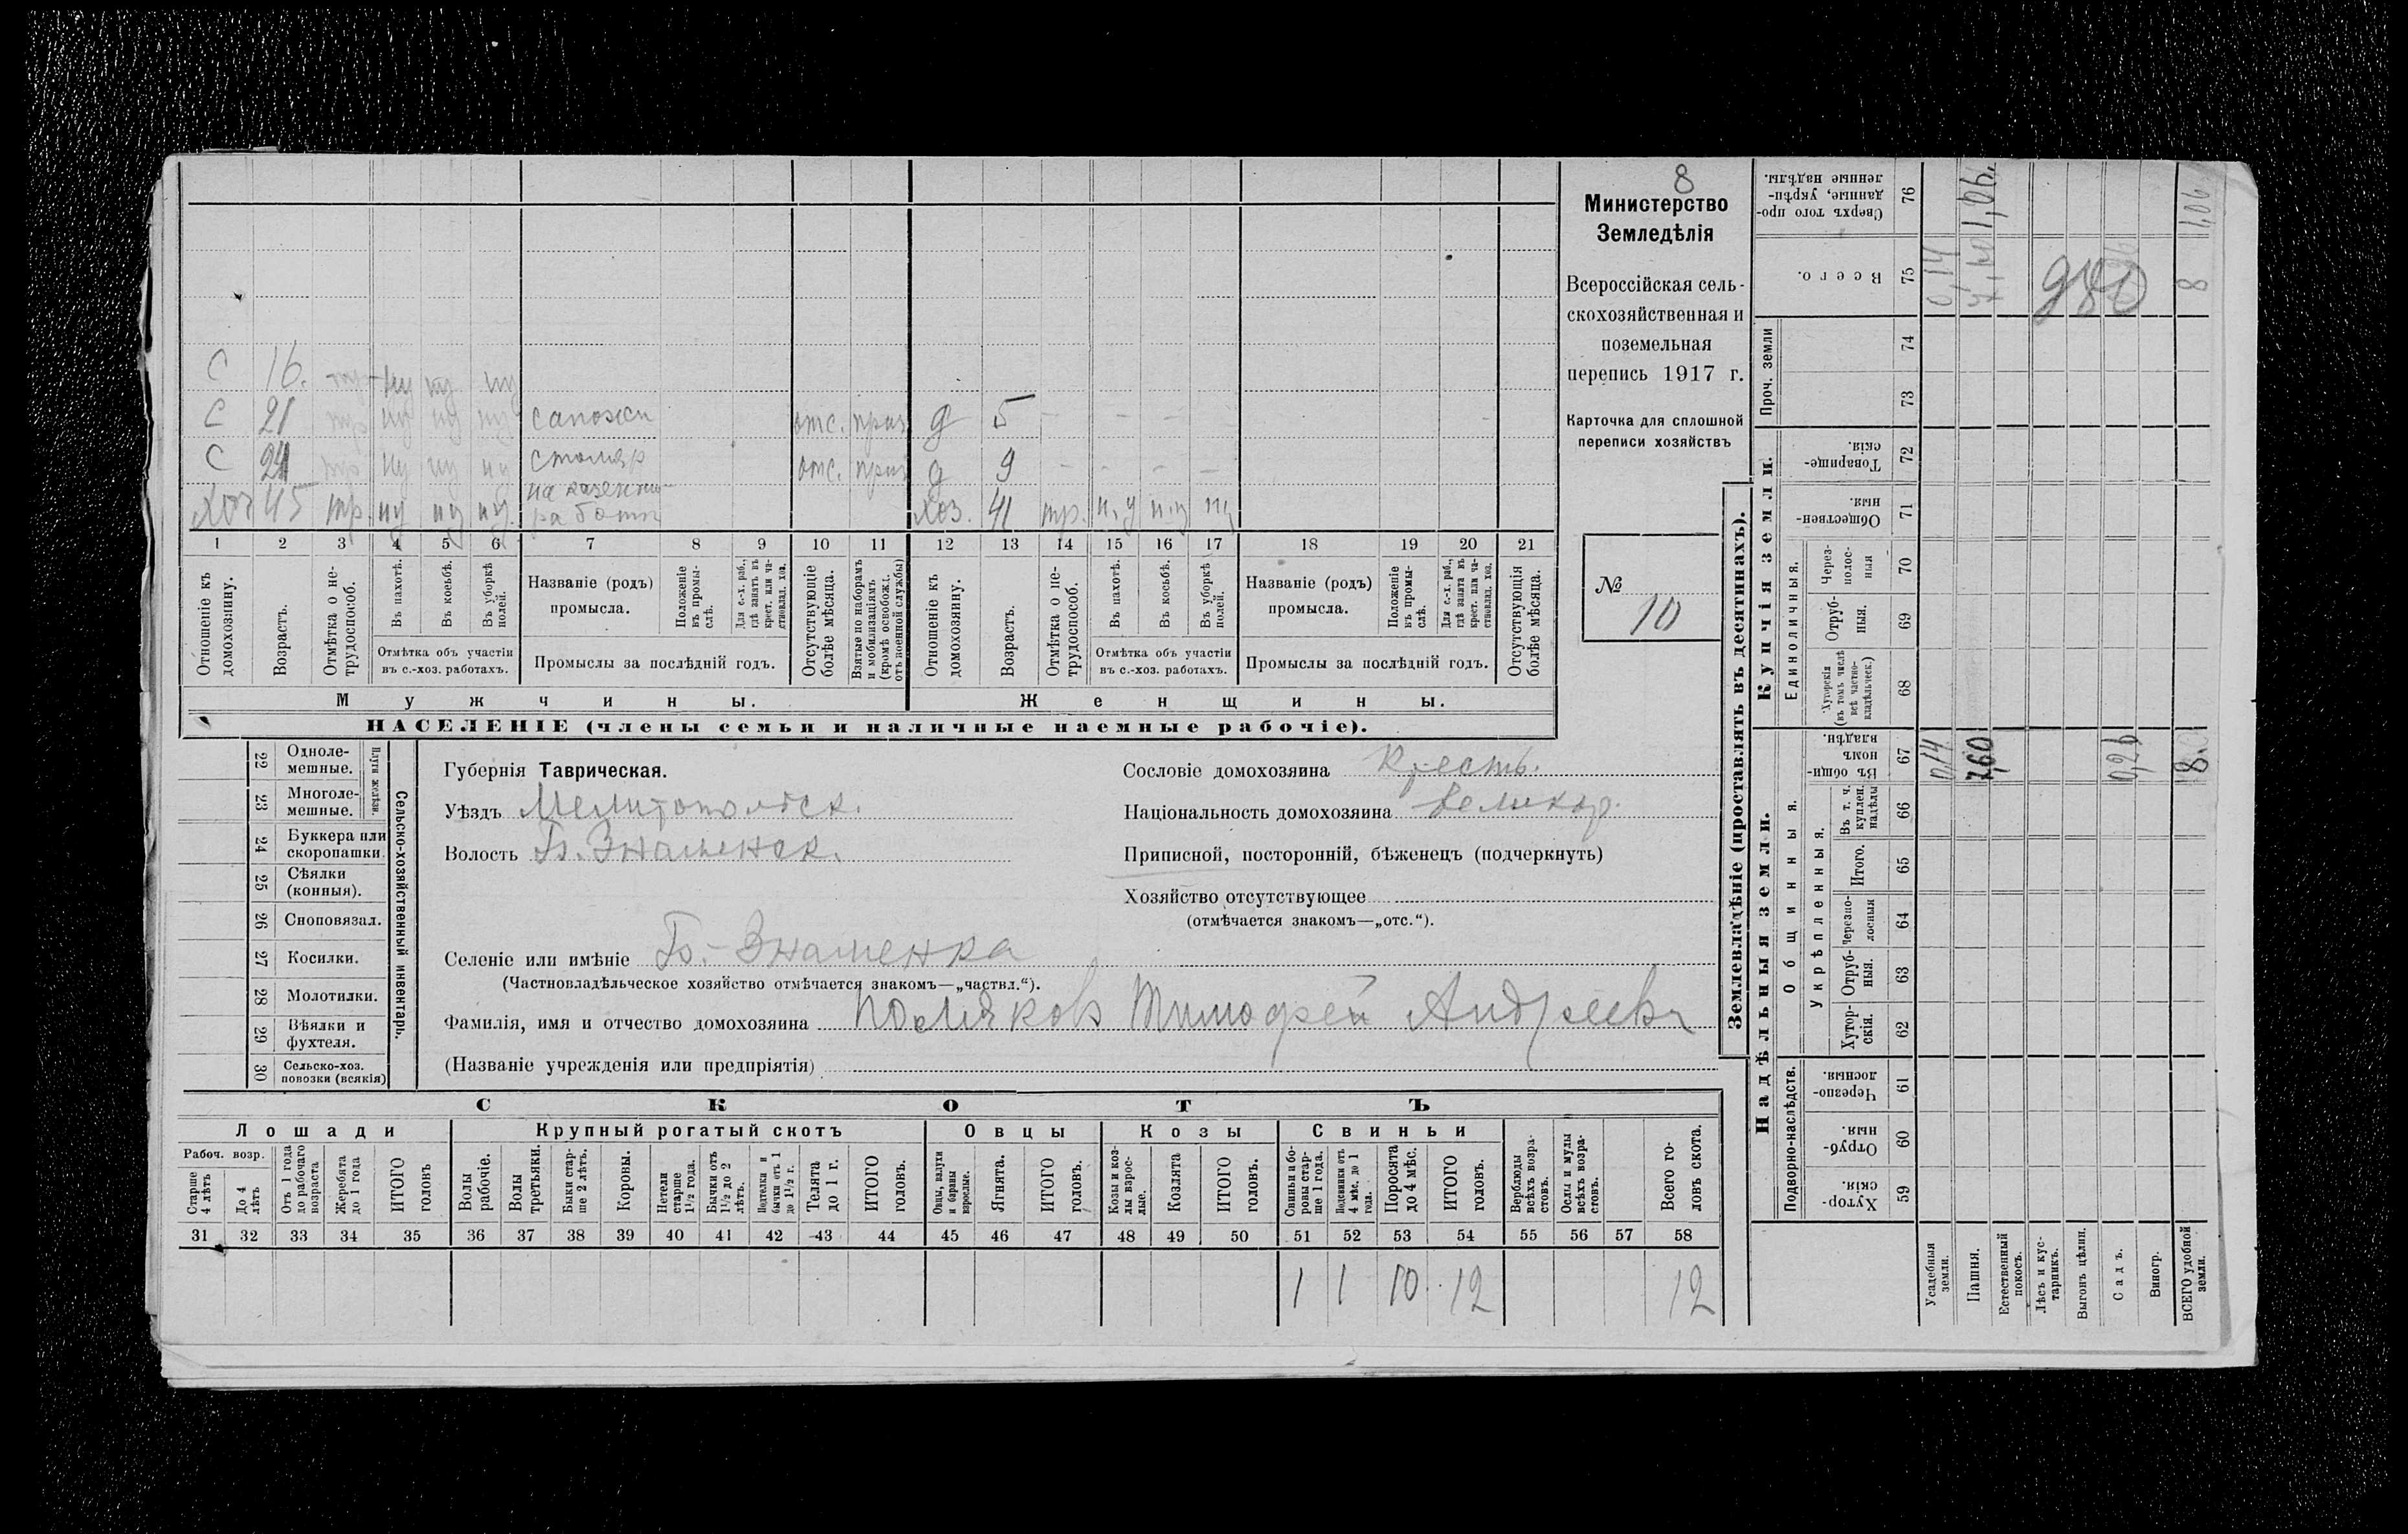 8
Министерство
Земледѣлія
Всероссійская сель-
скохозяйственная и
поземельная
перепись 1917 г.
Карточка для сплошной
переписи хозяйствъ
№
10
С 16.
С 21 сапожн отс. приз д 5 - - - -
С 24 столяр отс. приз д 9 - - - -
хоз 45 тр. ну ну ну. на казенн работы хоз. 41 тр. н,у н,у ну
1 2 3 4 5 6 7 8 9 10 11 12 13 14 15 16 17 18 19 20 21
Отношеніе къ домохозяину.
Возрастъ.
Отмѣтка о не-трудоспособ.
Въ пахотѣ.
Въ косьбѣ.
Въ уборкѣ полей.
Отмѣтка объ участіи
въ с.-хоз. работахъ.
Названіе (родъ)
промысла.
Положеніе въ промы-слѣ.
Для с.-х. раб., гдѣ занятъ въ крест. или ча-стновлад. хоз.
Промыслы за послѣдній годъ.
Отсутствующіе болѣе мѣсяца.
Взятые по наборамъ и мобилизаціямъ (кромѣ освобожд. отъ военной службы)
Отношеніе къ домохозяину.
Возрастъ.
Отмѣтка о не-трудоспособ.
Въ пахотѣ.
Въ косьбѣ.
Въ уборкѣ полей.
Отмѣтка объ участіи
въ с.-хоз. работахъ.
Названіе (родъ)
промысла.
Положеніе въ промы-слѣ.
Для с.-х. раб., гдѣ занята въ крест. или ча-стновлад. хоз.
Промыслы за послѣдній годъ.
Отсутствующія болѣе мѣсяца.
Мужчины.
Женщины.
НАСЕЛЕНІЕ (члены семьи и наличные наемные рабочіе).
22 Одноле-мешные.
23 Многоле-мешные.
Плуги желѣзн.
24 Буккера или скоропашки.
25 Сѣялки (конныя).
26 Сноповязал.
27 Косилки.
28 Молотилки.
29 Вѣялки и фухтеля.
30 Сельско-хоз. повозки (всякія)
Сельско-хозяйственный инвентарь.
Губернія Таврическая.
Уѣздъ Мелитопольск.
Волость Б. Знаменск.
Селеніе или имѣніе Б.-Знаменка
(Частновладѣльческое хозяйство отмѣчается знакомъ—„частвл.“).
Фамилія, имя и отчество домохозяина Поляков Тимофей Андреевъ
(Названіе учрежденія или предпріятія)
Сословіе домохозяина Кресть.
Національность домохозяина великор.
Приписной, посторонній, бѣженецъ (подчеркнуть)
Хозяйство отсутствующее
(отмѣчается знакомъ—„отс.“).
СКОТЪ
Лошади Крупный рогатый скотъ Овцы Козы Свиньи
Рабоч. возр.
Старше 4 лѣтъ
До 4 лѣтъ
Отъ 1 года до рабочаго возраста
Жеребята до 1 года
ИТОГО головъ
Волы рабочіе.
Волы третьяки.
Быки стар-ше 2 лѣтъ.
Коровы.
Нетели старше 1½ года.
Бычки отъ 1½ до 2 лѣтъ.
Подтелки и бычки отъ 1 до 1½ г.
Телята до 1 г.
ИТОГО головъ.
Овцы, валухи и бараны взрослые.
Ягнята.
ИТОГО головъ.
Козы и коз-лы взрос-лые.
Козлята
ИТОГО головъ.
Свиньи и бо-ровы стар-ше 1 года.
Подсвинки отъ 4 мѣс. до 1 года.
Поросята до 4 мѣс.
ИТОГО головъ.
Верблюды всѣхъ возра-стовъ.
Ослы и мулы всѣхъ возра-стовъ.
Всего го-ловъ скота.
31 32 33 34 35 36 37 38 39 40 41 42 43 44 45 46 47 48 49 50 51 52 53 54 55 56 57 58
1 1 10 12 12
Землевладѣніе (проставлять въ десятинахъ).
Надѣльныя земли.
Купчія земли.
Проч. земли
Подворно-наслѣдств.
Общинныя.
Укрѣпленныя.
Единоличныя.
Хутор-скія. 59
Отруб-ныя. 60
Черезпо-лосныя. 61
Хутор-скія. 62
Отруб-ныя. 63
Черезпо-лосныя 64
Итого. 65
Въ т. ч. куплен. надѣлы 66
Въ общи-номъ владѣн. 67
Хуторскія (въ томъ числѣ всѣ частно-владѣльческ.) 68
Отруб-ныя. 69
Через-полос-ныя 70
Обществен-ныя. 71
Товарище-скія. 72
73
74
Всего. 75
Сверхъ того про-данные, укрѣп-ленные надѣлы. 76
Усадебныя земли. 0,14 0,14
Пашня. 7,60 1,06.
Естественный покосъ.
Лѣсъ и кус-тарникъ.
Выгонъ цѣлин.
Садъ. 0,26
Виногр.
ВСЕГО удобной земли. 8. 8 1,06